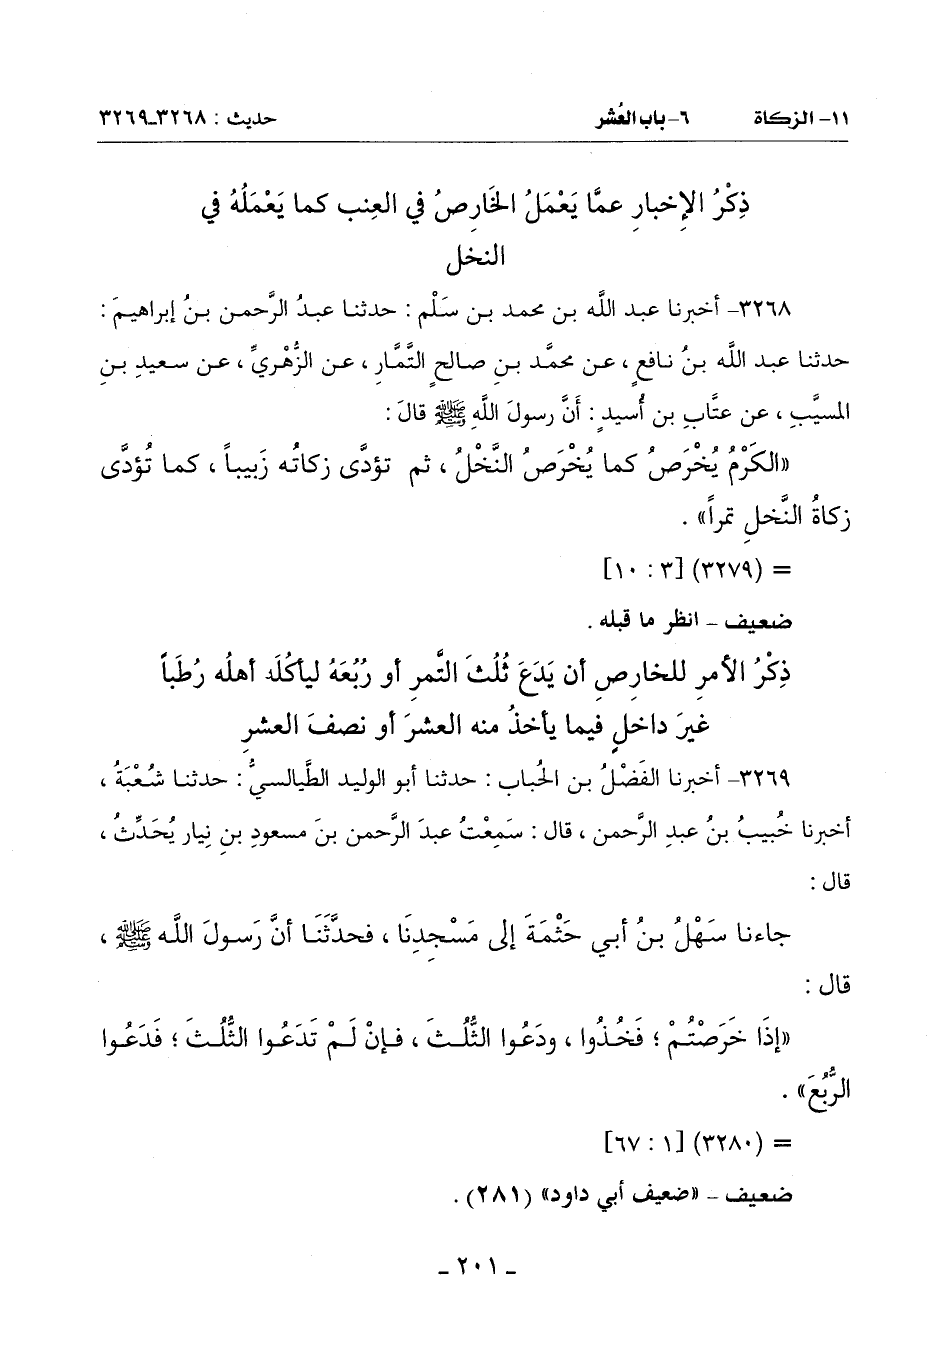 ١١- الزكاة ٦- باب العُشر حديث : ٣٢٦٨-٣٢٦٩
ذِكْرُ الإخبارِ عمَّا يَعْمَلُ الخَارِصُ في العِنبِ كما يَعْمَلُهُ في
النخل
٣٢٦٨- أخبرنا عبد اللَّه بن محمد بن سَلْم : حدثنا عبدُ الرَّحمن بنُ إبراهيمَ :
حدثنا عبد اللَّه بنُ نافعٍ ، عن محمَّد بنِ صالحٍ التَّمَّارِ ، عن الزُّهْريِّ ، عن سعيدِ بنِ
المسيَّبِ ، عن عتَّابِ بن أُسيدٍ : أنَّ رسولَ اللَّهِ ﷺ قالَ :
«الكَرْمُ يُخْرَصُ كما يُخْرَصُ النَّخْلُ ، ثم تؤدَّى زكاتُه زَبيباً ، كما تُؤدَّى
زكاةُ النَّخلِ تمراً» .
= (٣٢٧٩) [٣ : ١٠]
ضعيف - انظر ما قبله .
ذِكْرُ الأمرِ للخارصِ أن يَدَعَ ثُلثَ التَّمرِ أو رُبُعَهُ ليأكُلَه أهلُه رُطَباً
غيرَ داخلٍ فيما يأخذُ منه العشرَ أو نصفَ العشرِ
٣٢٦٩- أخبرنا الفَضْلُ بن الحُباب : حدثنا أبو الوليد الطَّيالسيُّ : حدثنا شُعْبَةُ ،
أخبرنا خُبيبُ بنُ عبدِ الرَّحمن ، قال : سَمِعْتُ عبدَ الرَّحمن بنَ مسعودِ بنِ نِيار يُحَدِّثُ ،
قال :
جاءنا سَهْلُ بنُ أبي حَثْمَةَ إلى مَسْجِدِنَا ، فحدَّثَنَا أنَّ رَسولَ اللَّه ﷺ ،
قال :
«إذَا خَرَصْتُمْ ؛ فَخُذُوا ، ودَعُوا الثُّلُثَ ، فإنْ لَمْ تَدَعُوا الثُّلُثَ ؛ فَدَعُوا
الرُّبُعَ» .
= (٣٢٨٠) [١ : ٦٧]
ضعيف - «ضعيف أبي داود» (٢٨١) .
- ٢٠١ -